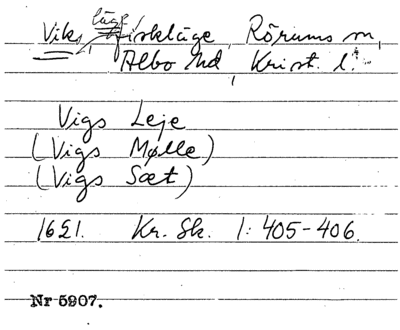 Vik, fiskläge, Rörums sn,
Albo hd, Krist. l.
Vigs Leje
(Vigs Mølle)
(Vigs Sæt)
1621. Kr. Sk. 1: 405-406.
Nr 5907.